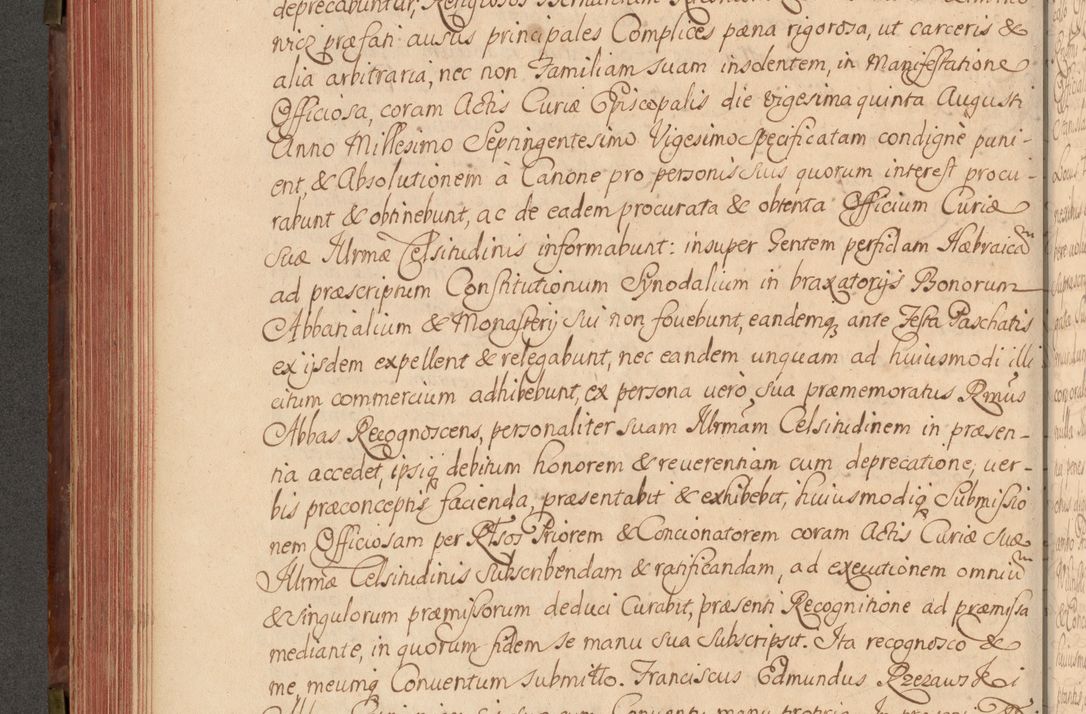 deprecabuntur, Religiosos Bernardum
wicz præfati ausus principales Complices pæna rigorosa, ut carceris &
alia arbitraria, nec non Familiam suam insolentem, in Manifestatione
Officiosa, coram Actis Curiæ Episcopalis die vigesima quinta Augusti
Anno Millesimo Septingentesimo Vigesimo specificatam condignè puni-
ent, & Absolutionem à Canone pro personis suis quorum interest procu-
rabunt & obtinebunt, ac de eadem procurata & obtenta Officium Curiæ
suæ Illrmæ Celsitudinis informabunt: insuper Gentem perfidam Hæbraicã
ad præscriptum Constitutionum Synodalium in braxatorijs Bonorum
Abbatialium & Monasterij sui non fovebunt, eandemq, ante Festa Paschatis
ex ijsdem expellent & relegabunt, nec eandem unquam ad huiusmodi illi
citum commercium adhibebunt, ex persona verò sua præmemoratus Rmus
Abbas Recognoscens, personaliter suam Illrmam Celsitudinem in præsen-
tia accedet, ipsiq debitum honorem & reverentiam cum deprecatione, ver-
bis præconceptis facienda, præsentabit & exhibebit, huiusmodiq Submissio
nem Officiosam per Rlsos Priorem & Concionatorem coram Actis Curiæ suæ
Illrmæ Celsitudinis subscribendam & ratificandam, ad executionem omniũ
& singulorum præmissorum deduci Curabit, præsenti Recognitione ad præmissa
mediante, in quorum fidem se manu sua subscripsit. Ita recognosco &
me, meumq Conventum submitto. Franciscus Edmundus Rzezawski